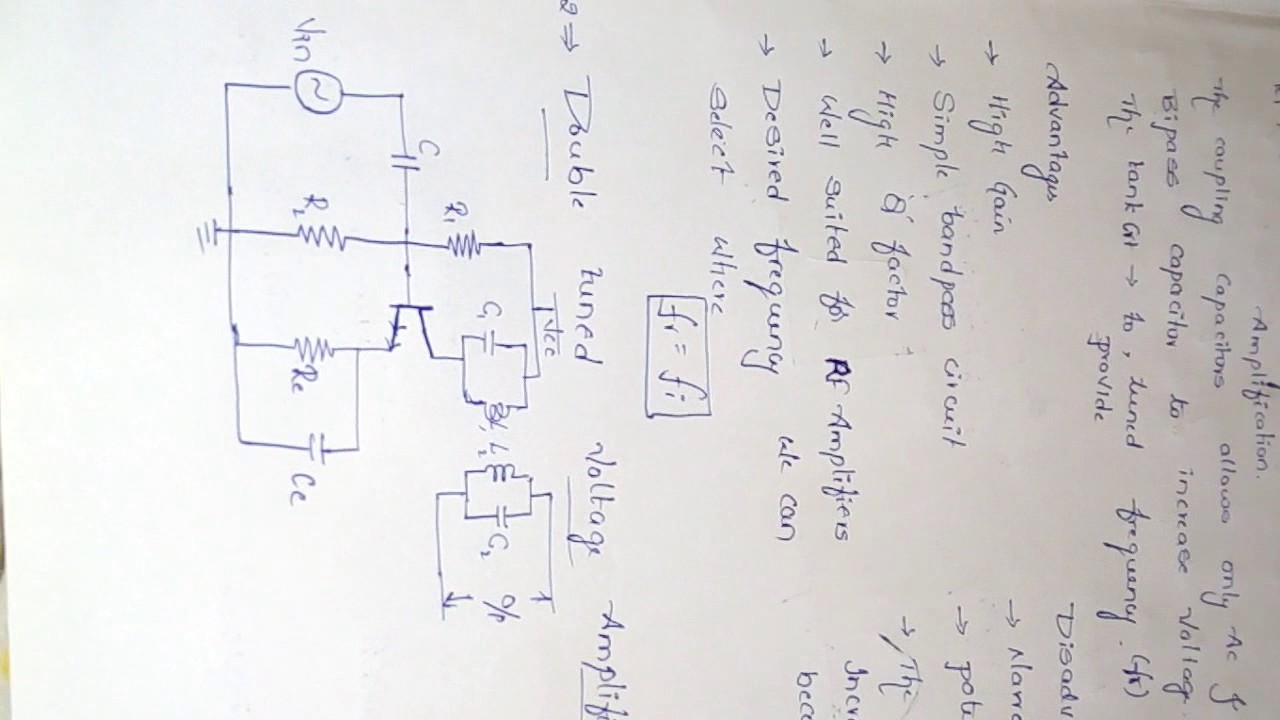 Amplification.
The coupling capacitors allows only Ac
Bipass capacitor to increase Voltage.
The tank → to, tuned frequency. (fr)
provide
Advantages
→ High Gain
→ Simple bandpass circuit
→ High Q factor
→ Well suited for Rf Amplifiers
→ Desired frequency we can
select where
fr = fi
Disadv
→ Narro
→ pote
→ The
Incre
beco
2⇒ Double tuned Voltage Amplifi
Vcc
R1
C1
L1
L2
C2
o/p
C
Vin
R2
Re
Ce